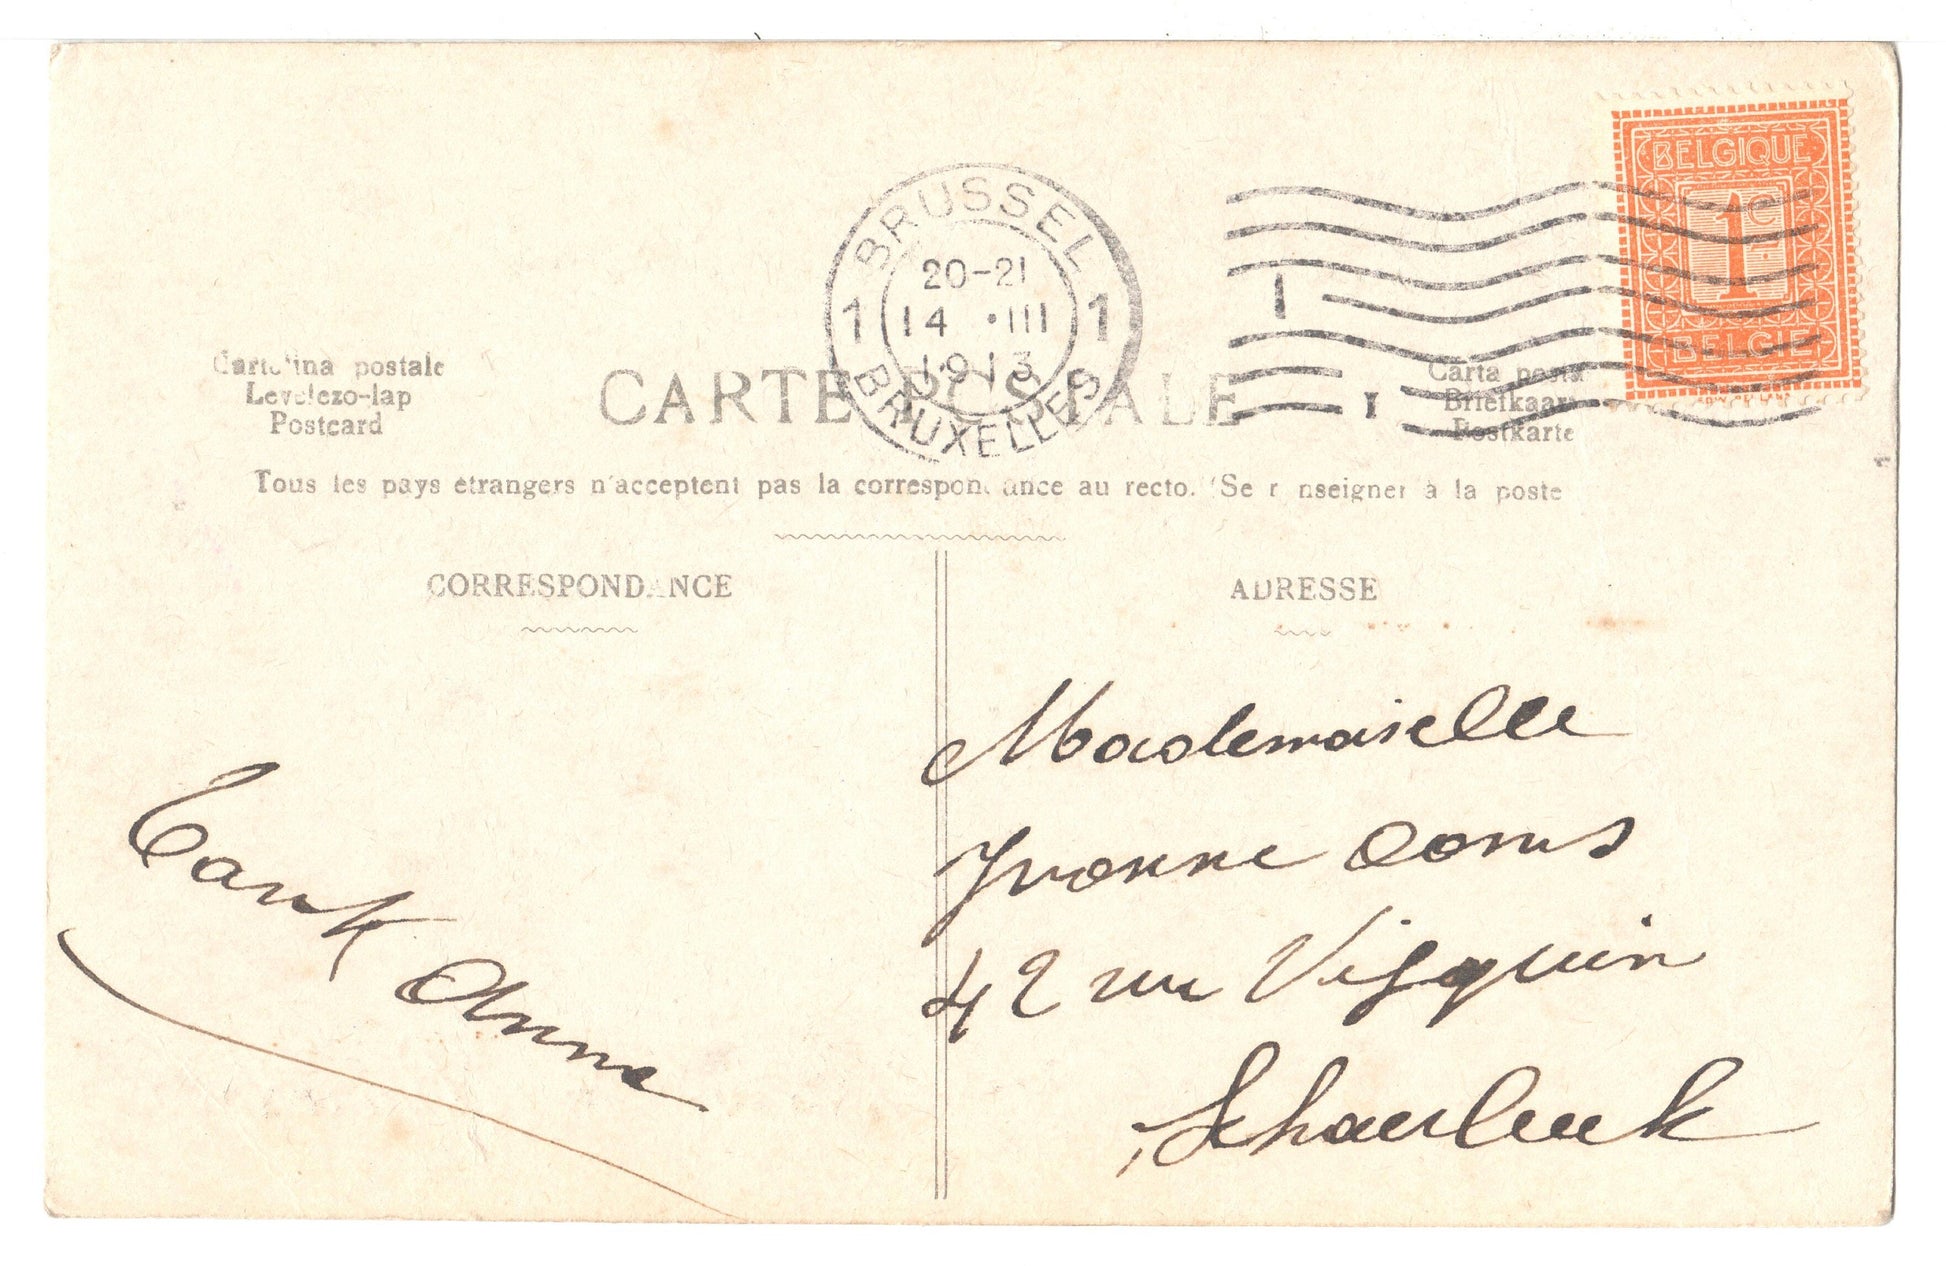 BELGIQUE
1c
BELGIË
BRUSSEL
20-21
1 14 · III 1
1913
BRUXELLES
I
I
Cartolina postale
Levelezo-lap
Postcard
CARTE POSTALE
Carta posta
Briefkaar
Postkarte
Tous les pays étrangers n'acceptent pas la correspondance au recto. (Se renseigner à la poste
CORRESPONDANCE
ADRESSE
Mademoiselle
Yvonne
42 rue
Schaerbeek
Anna